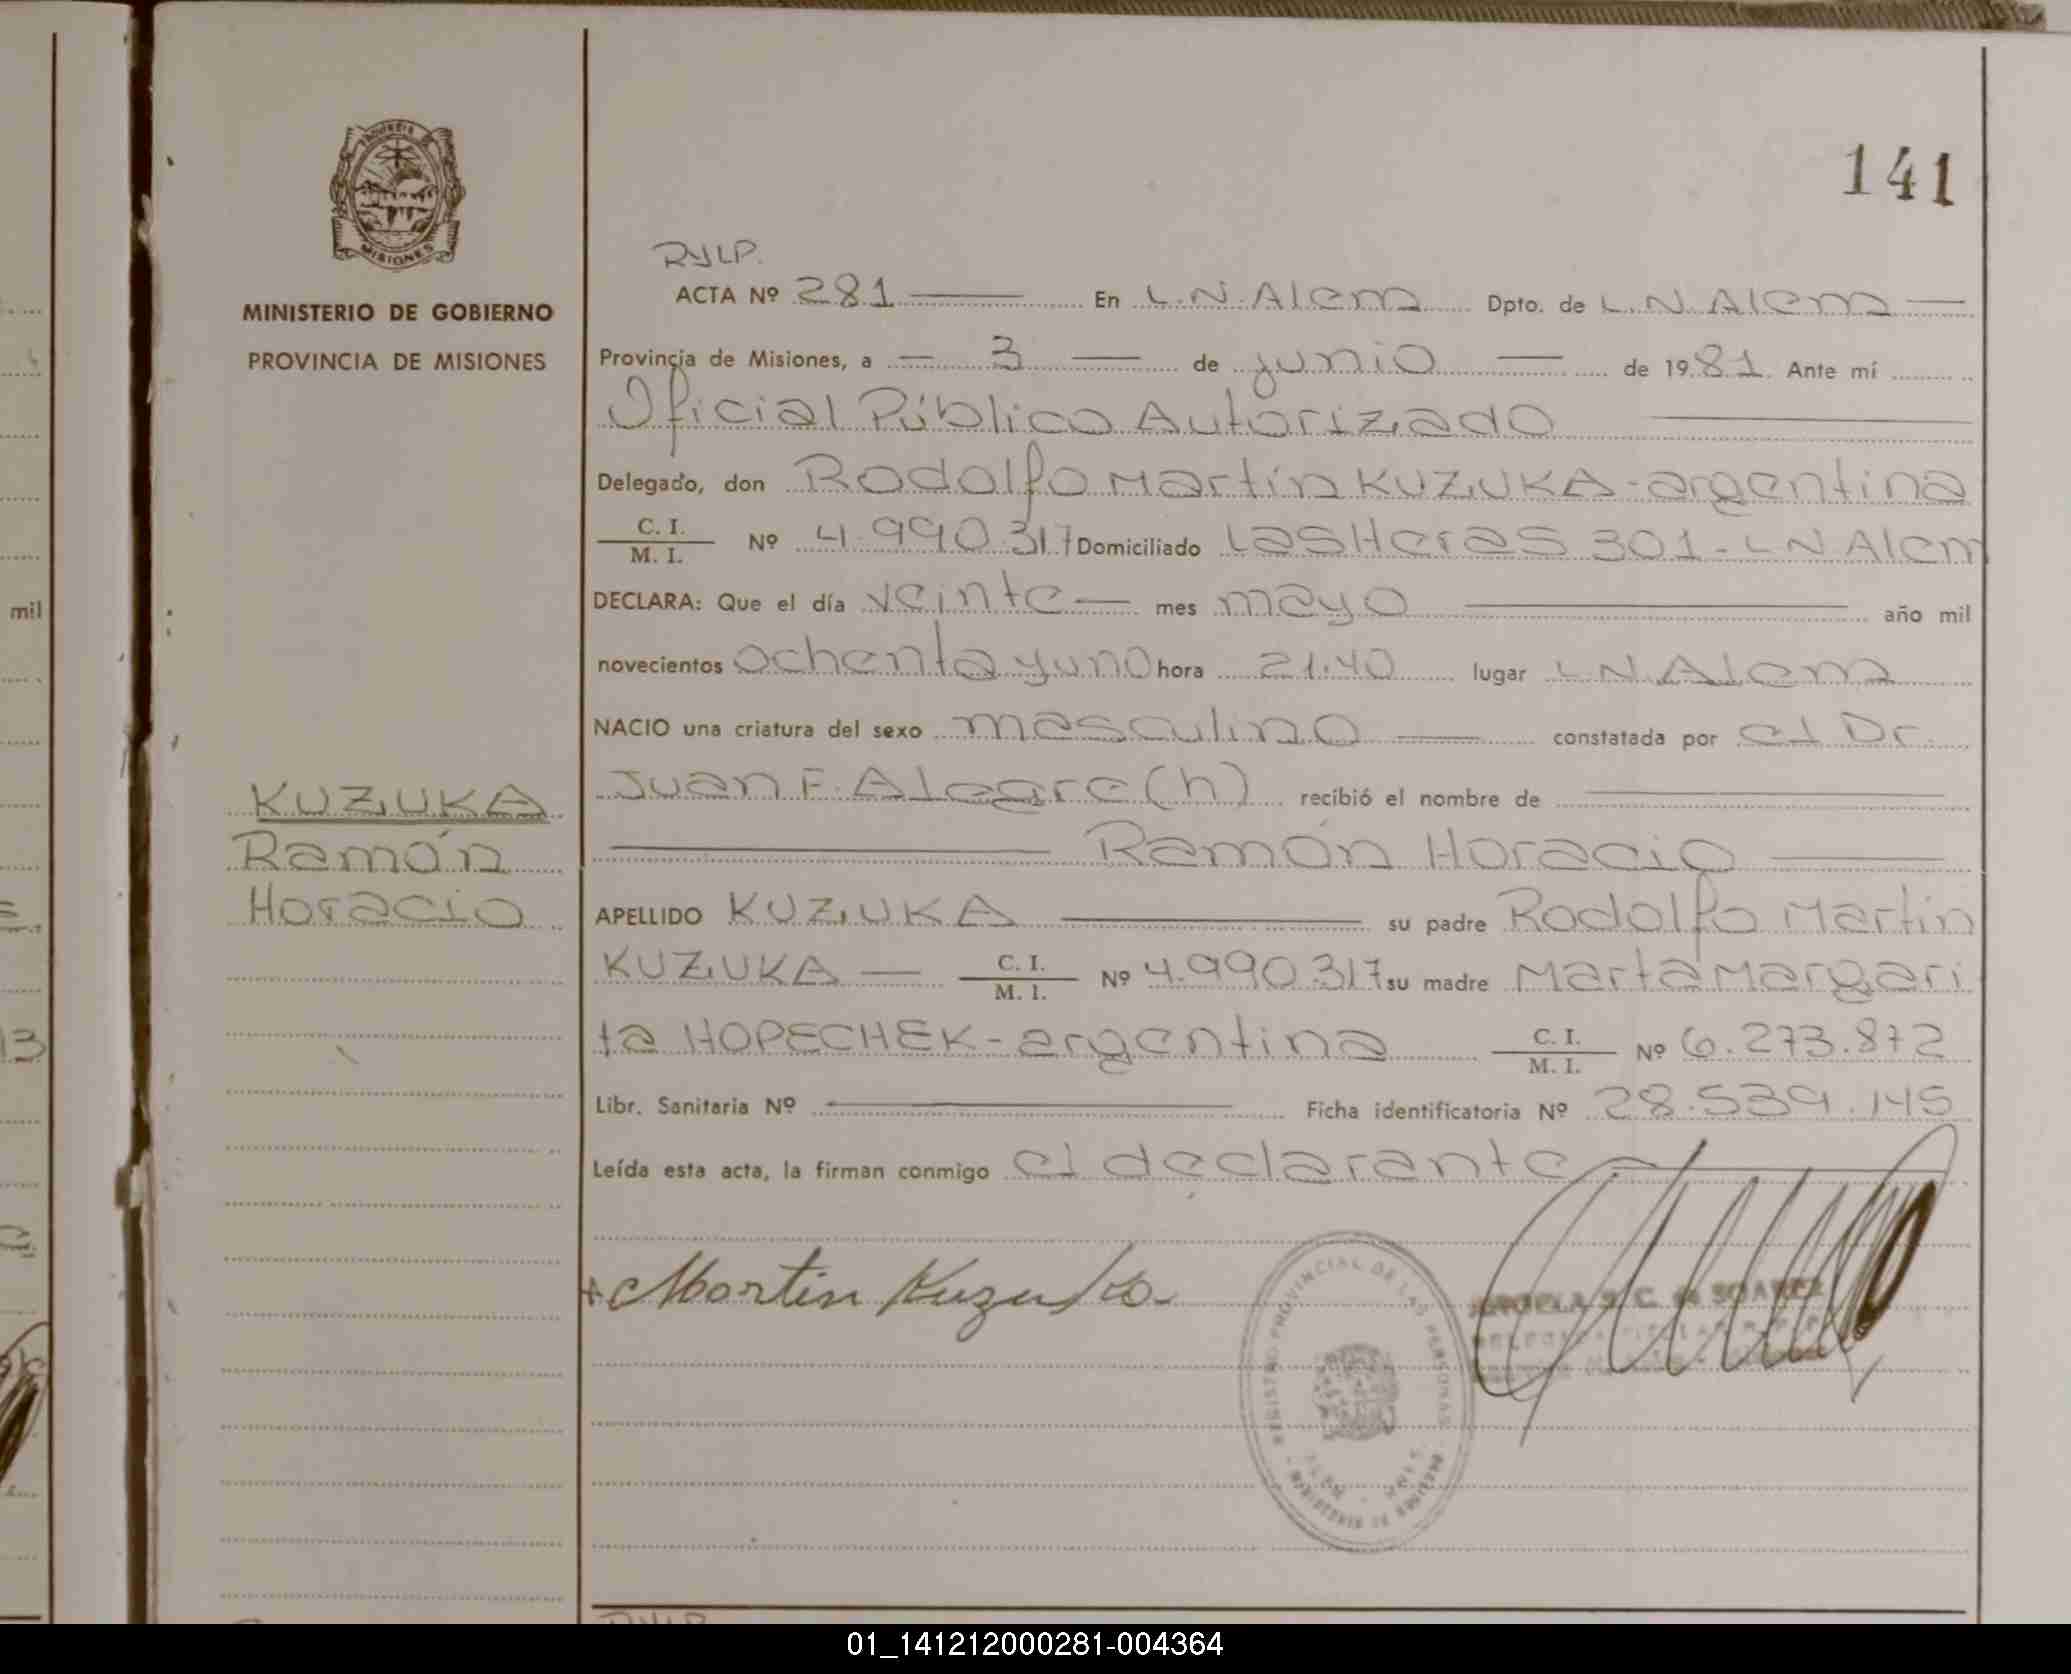 141
MISIONES
MINISTERIO DE GOBIERNO
PROVINCIA DE MISIONES
KUZUKA
Ramón
Horacio
ACTA Nº 281 En L.N. Alem Dpto. de L.N. Alem
Provincia de Misiones, a 3 de junio de 1981. Ante mí
Oficial Público Autorizado
Delegado, don Rodolfo Martín KUZUKA-argentina
C. I. / M. I. Nº 4.990.317 Domiciliado Las Heras 301-LN Alem
DECLARA: Que el día veinte mes mayo año mil
novecientos ochenta y uno hora 21.40 lugar L N Alem
NACIO una criatura del sexo masculino constatada por el Dr.
Juan F. Alegre (h) recibió el nombre de
Ramón Horacio
APELLIDO KUZUKA su padre Rodolfo Martin
KUZUKA C. I. / M. I. Nº 4.990.317 su madre Marta Margari
ta HOPECHEK-argentina C. I. / M. I. Nº 6.273.872
Libr. Sanitaria Nº Ficha identificatoria Nº 28.539.145
Leída esta acta, la firman conmigo el declarante
Martin Kuzuka
REGISTRO PROVINCIAL DE LAS PERSONAS
MINISTERIO DE GOBIERNO
C. de SOAREZ
mil
13
01_141212000281-004364